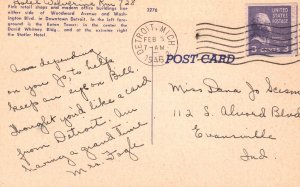 Hotel Wolverine Rm 728
Fine retail shops and modern office buildings line
either side of Woodward Avenue and Wash-
ington Blvd. in Downtown Detroit. In the left fore-
ground is the Eaton Tower; in the center the
David Whitney Bldg., and at the extreme right
the Statler Hotel.
2276
DETROIT, MICH.
FEB
7-AM
1946
3 CENTS 3
POST CARD
Am depending
on you Jo, to help
keep an eye on Bill.
Thought you'd like a card
from Detroit. Am
having a grand time
Mrs. Fogle
Miss Dana Jo
112 S. Alvord Blvd
Evansville
Ind.